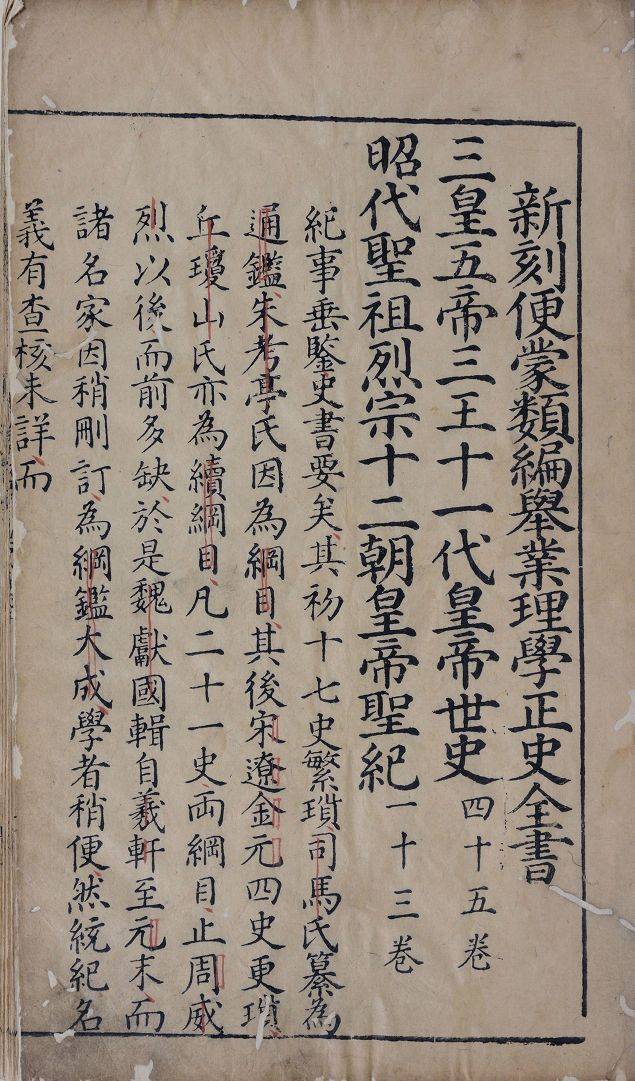 新刻便蒙類編舉業理學正史全書
三皇五帝三王十一代皇帝世史 四十五卷
昭代聖祖烈宗十二朝皇帝聖紀 一十三卷
紀事垂鑒史書要矣其初十七史繁瑣司馬氏纂為
通鑑朱考亭氏因為綱目其後宋遼金元四史更瑣
丘瓊山氏亦為續綱目凡二十一史両綱目止周威
烈以後而前多缺於是魏獻國輯自羲軒至元末而
諸名家因稍刪訂為綱鑑大成學者稍便然統紀名
義有查核未詳而